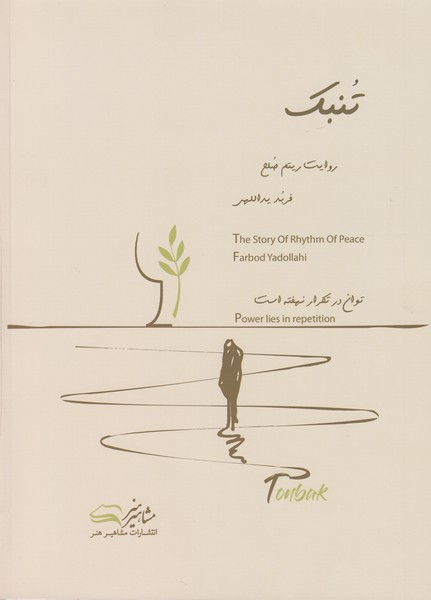 تُنبک
روایت ریتم صلح
فربد یداللهی
The Story Of Rhythm Of Peace
Farbod Yadollahi
توان در تکرار نهفته است
Power lies in repetition
Tonbak
مشاهیر هنر
انتشارات مشاهیر هنر